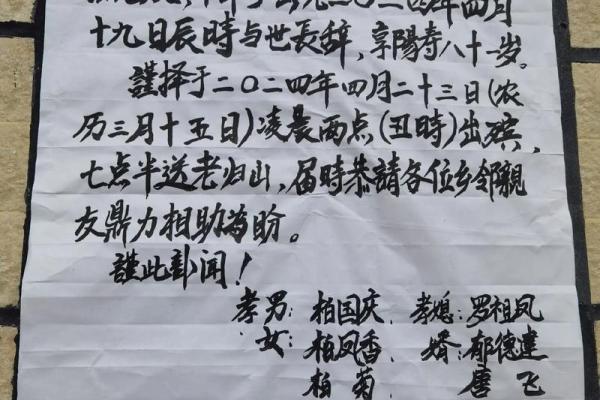 年四月
十九日辰時与世長辞,享陽寿八十一岁。
謹择于二〇二四年四月二十三日(农
历三月十五日)凌晨两点(丑時)出殡,
七点半送老归山,届時恭請各位乡邻親
友鼎力相助为盼。
謹此訃闻!
孝男:柏国庆. 孝媳:罗祖凤
女:柏凤香. 婿:郁德建
柏菊. 唐飞